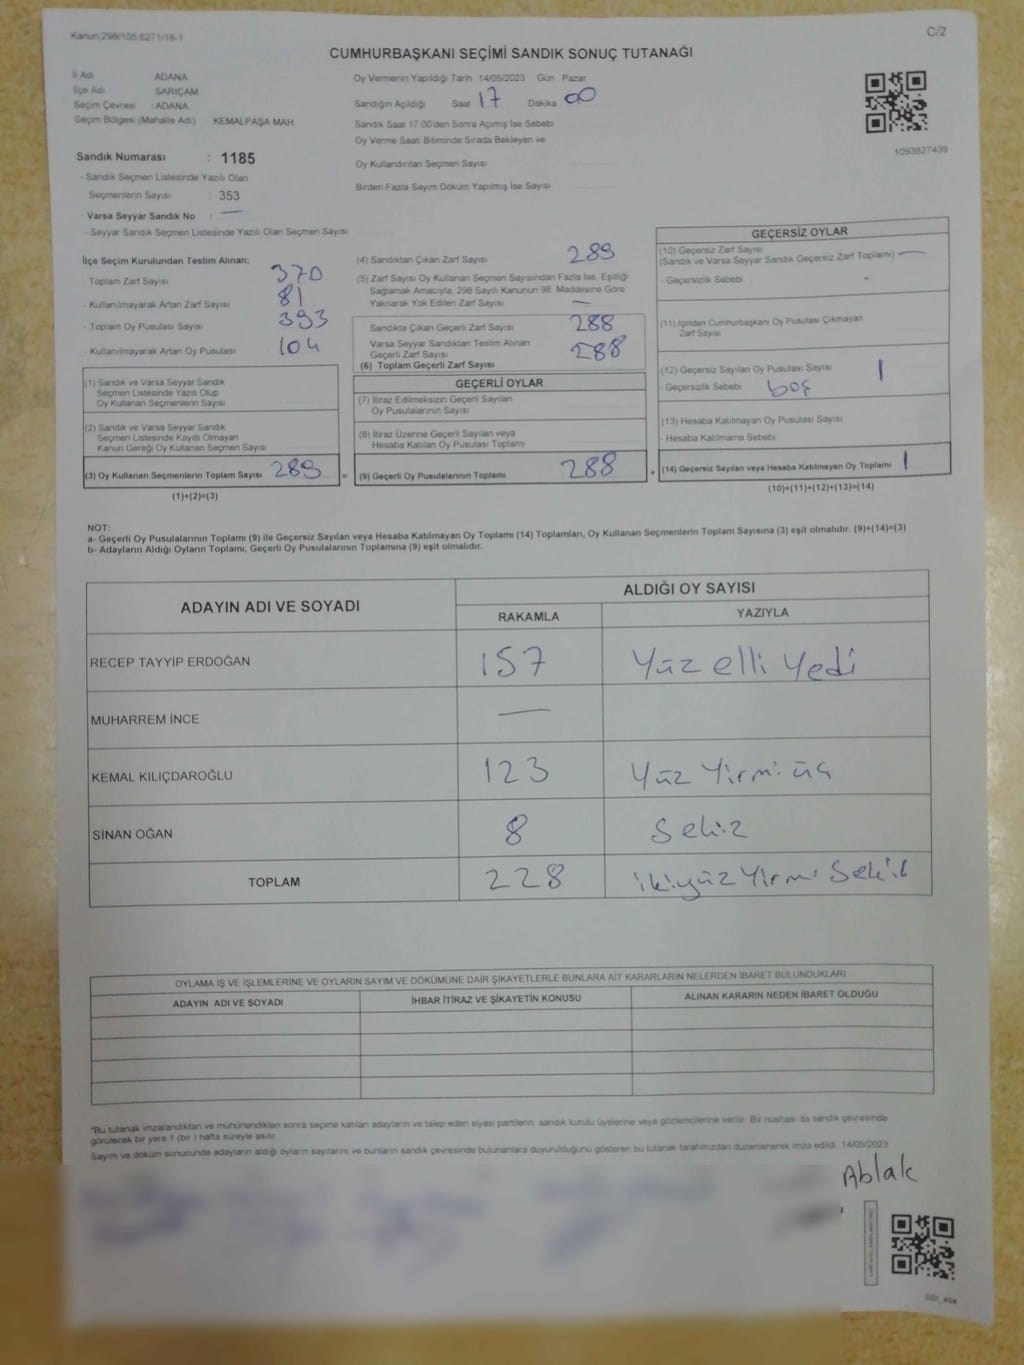 Kanun:298/105,6271/18-1
C/2
CUMHURBAŞKANI SEÇİMİ SANDIK SONUÇ TUTANAĞI
İl Adı ADANA
İlçe Adı SARIÇAM
Seçim Çevresi : ADANA
Seçim Bölgesi (Mahalle Adı) KEMALPAŞA MAH
Oy Vermenin Yapıldığı Tarih 14/05/2023 Gün Pazar
Sandığın Açıldığı Saat 17 Dakika 00
Sandık Saat 17:00'den Sonra Açımış İse Sebebi
Oy Verme Saati Bitiminde Sırada Bekleyen ve
Oy Kullandırılan Seçmen Sayısı
Birden Fazla Sayım Döküm Yapılmış İse Sayısı
1093827439
Sandık Numarası : 1185
- Sandık Seçmen Listesinde Yazılı Olan
Seçmenlerin Sayısı : 353
Varsa Seyyar Sandık No : —
- Seyyar Sandık Seçmen Listesinde Yazılı Olan Seçmen Sayısı
İlçe Seçim Kurulundan Teslim Alınan;
- Toplam Zarf Sayısı 370
- Kullanılmayarak Artan Zarf Sayısı 81
- Toplam Oy Pusulası Sayısı 393
- Kullanılmayarak Artan Oy Pusulası 104
(1) Sandık ve Varsa Seyyar Sandık
Seçmen Listesinde Yazılı Olup
Oy Kullanan Seçmenlerin Sayısı
(2) Sandık ve Varsa Seyyar Sandık
Seçmen Listesinde Kayıtlı Olmayan
Kanun Gereği Oy Kullanan Seçmen Sayısı
(3) Oy Kullanan Seçmenlerin Toplam Sayısı 289 =
(1)+(2)=(3)
(4) Sandıktan Çıkan Zarf Sayısı 289
(5) Zarf Sayısı Oy Kullanan Seçmen Sayısından Fazla İse, Eşitliği
Sağlamak Amacıyla, 298 Sayılı Kanunun 98. Maddesine Göre
Yakılarak Yok Edilen Zarf Sayısı —
Sandıkta Çıkan Geçerli Zarf Sayısı 288
Varsa Seyyar Sandıktan Teslim Alınan
Geçerli Zarf Sayısı
(6) Toplam Geçerli Zarf Sayısı 288
GEÇERLİ OYLAR
(7) İtiraz Edilmeksizin Geçerli Sayılan
Oy Pusulalarının Sayısı
(8) İtiraz Üzerine Geçerli Sayılan veya
Hesaba Katılan Oy Pusulası Toplamı
(9) Geçerli Oy Pusulalarının Toplamı 288 +
GEÇERSİZ OYLAR
(10) Geçersiz Zarf Sayısı
(Sandık ve Varsa Seyyar Sandık Geçersiz Zarf Toplamı) —
- Geçersizlik Sebebi -
(11) İçinden Cumhurbaşkanı Oy Pusulası Çıkmayan
Zarf Sayısı
(12) Geçersiz Sayılan Oy Pusulası Sayısı 1
- Geçersizlik Sebebi boş
(13) Hesaba Katılmayan Oy Pusulası Sayısı
- Hesaba Katılmama Sebebi
(14) Geçersiz Sayılan veya Hesaba Katılmayan Oy Toplamı 1
(10)+(11)+(12)+(13)=(14)
NOT:
a- Geçerli Oy Pusulalarının Toplamı (9) ile Geçersiz Sayılan veya Hesaba Katılmayan Oy Toplamı (14) Toplamları, Oy Kullanan Seçmenlerin Toplam Sayısına (3) eşit olmalıdır. (9)+(14)=(3)
b- Adayların Aldığı Oyların Toplamı, Geçerli Oy Pusulalarının Toplamına (9) eşit olmalıdır.
ADAYIN ADI VE SOYADI
ALDIĞI OY SAYISI
RAKAMLA YAZIYLA
RECEP TAYYİP ERDOĞAN 157 Yüz elli Yedi
MUHARREM İNCE —
KEMAL KILIÇDAROĞLU 123 Yüz Yirmi üç
SİNAN OĞAN 8 Sekiz
TOPLAM 228 ikiyüz Yirmi Sekiz
OYLAMA İŞ VE İŞLEMLERİNE VE OYLARIN SAYIM VE DÖKÜMÜNE DAİR ŞİKAYETLERLE BUNLARA AİT KARARLARIN NELERDEN İBARET BULUNDUKLARI
ADAYIN ADI VE SOYADI İHBAR İTİRAZ VE ŞİKAYETİN KONUSU ALINAN KARARIN NEDEN İBARET OLDUĞU
"Bu tutanak imzalandıktan ve mühürlendikten sonra seçime katılan adayların ve talep eden siyasi partilerin sandık kurulu üyelerine veya gözlemcilerine verilir. Bir nüshası da sandık çevresinde
görülecek bir yere 1 (bir ) hafta süreyle asılır.
Sayım ve döküm sonucunda adayların aldığı oyların sayılarını ve bunların sandık çevresinde bulunanlara duyurulduğunu gösteren bu tutanak tarafımızdan düzenlenerek imza edildi. 14/05/2023
Ablak